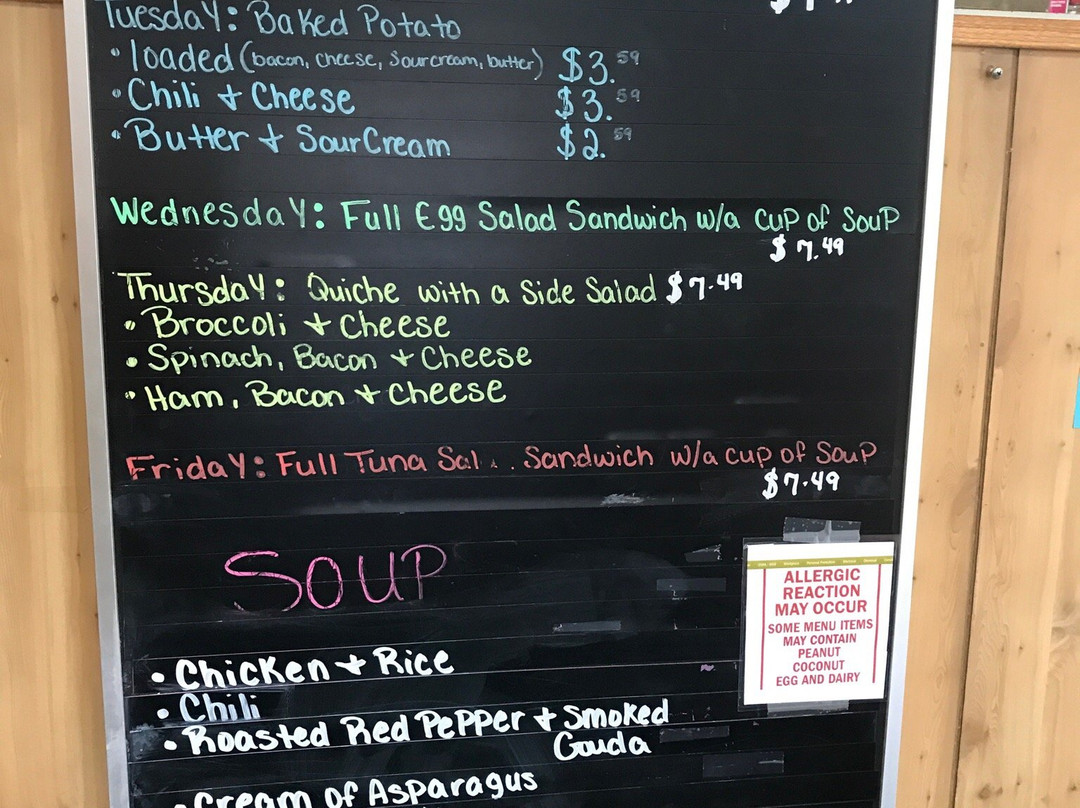 Tuesday: Baked Potato
• loaded (bacon, cheese, sour cream, butter) $3.59
• Chili + Cheese $3.59
• Butter + Sour Cream $2.59
Wednesday: Full Egg Salad Sandwich w/a cup of Soup
$7.49
Thursday: Quiche with a Side Salad $7.49
• Broccoli + Cheese
• Spinach, Bacon + Cheese
• Ham, Bacon + Cheese
Friday: Full Tuna Sal Sandwich w/a cup of Soup
$7.49
Soup
• Chicken + Rice
• Chili
• Roasted Red Pepper + Smoked
Gouda
• Cream of Asparagus
ALLERGIC
REACTION
MAY OCCUR
SOME MENU ITEMS
MAY CONTAIN
PEANUT
COCONUT
EGG AND DAIRY